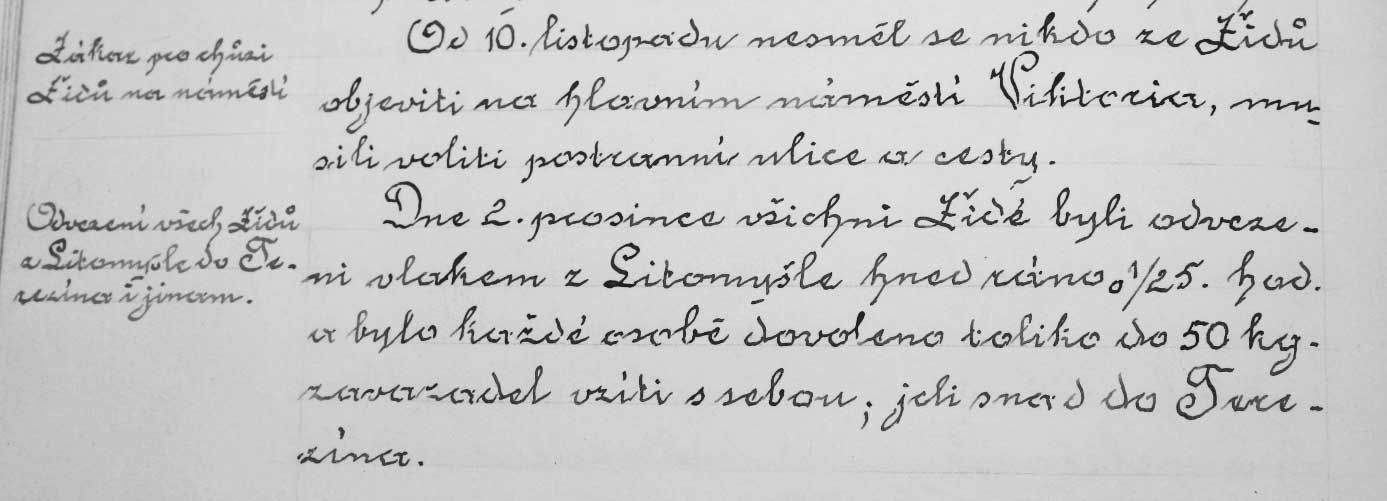 Zákaz pro chůzi
Židů na náměstí
Od 10. listopadu nesměl se nikdo ze Židů
objeviti na hlavním náměstí Viktoria, mu-
sili voliti postranní ulice a cesty.
Odvezení všech Židů
z Litomyšle do Te-
rezína i jinam.
Dne 2. prosince všichni Židé byli odveze-
ni vlakem z Litomyšle hned ráno o 1/25. hod.
a bylo každé osobě dovoleno toliko do 50 kg.
zavazadel vzíti s sebou; jeli snad do Tere-
zína.